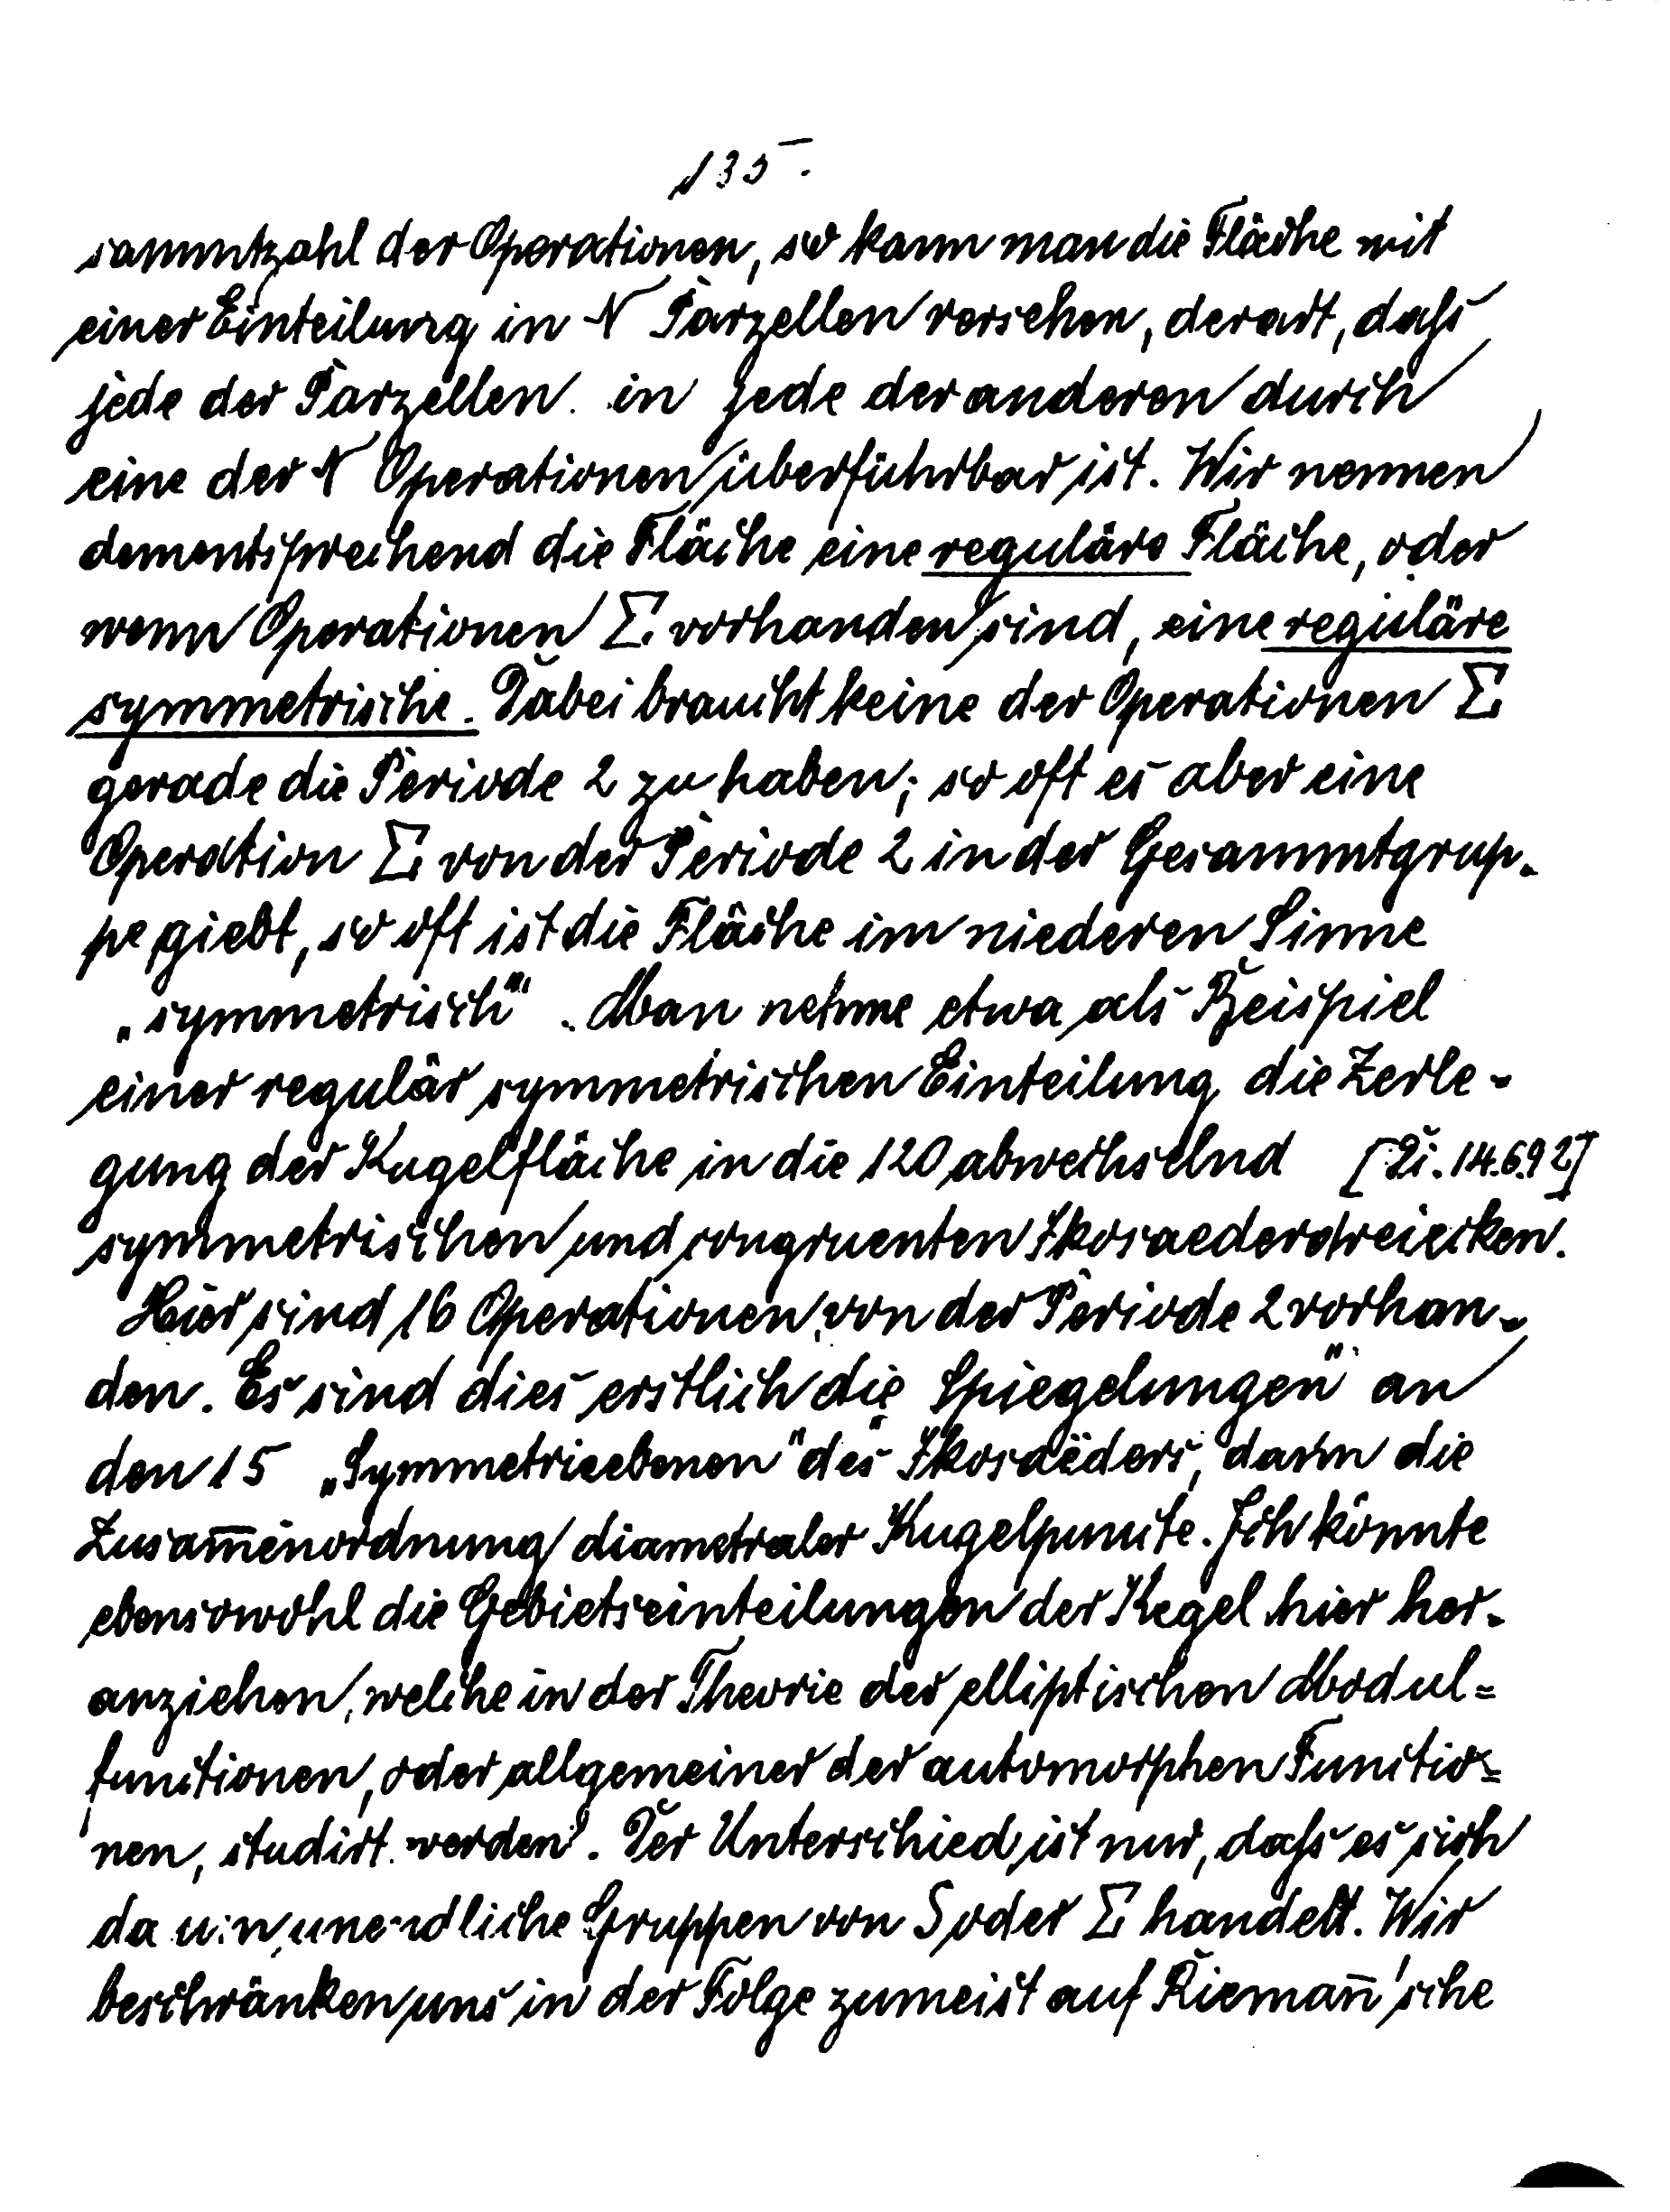 135.
sammtzahl der Operationen, so kann man die Fläche mit
einer Einteilung in N Parzellen versehen, derart, daſs
jede der Parzellen in jede der anderen durch
eine der N Operationen überführbar ist. Wir nennen
dementsprechend die Fläche eine reguläre Fläche, oder
wenn Operationen Σ vorhanden sind, eine reguläre
symmetrische. Dabei braucht keine der Operationen Σ
gerade die Periode 2 zu haben; so oft es aber eine
Operation Σ von der Periode 2 in der Gesammtgrup-
pe giebt, so oft ist die Fläche im niederen Sinne
„symmetrisch". Man nehme etwa als Beispiel
einer regulär symmetrischen Einteilung die Zerle-
gung der Kugelfläche in die 120 abwechselnd [Di. 14.6.92]
symmetrischen und congruenten Ikosaederdreiecken.
Hier sind 16 Operationen von der Periode 2 vorhan-
den. Es sind dies erstlich die „Spiegelungen" an
den 15 „Symmetrieebenen" des Ikosaëders, dann die
Zusam̅enordnung diametraler Kugelpuncte. Ich könnte
ebensowohl die Gebietseinteilungen der Kegel hier her-
anziehen, welche in der Theorie der elliptischen Modul=
functionen, oder allgemeiner der automorphen Functio=
nen, studirt werden. Der Unterschied ist nur, daſs es sich
da um unendliche Gruppen von S oder Σ handelt. Wir
beschränken uns in der Folge zumeist auf Rieman̅'sche